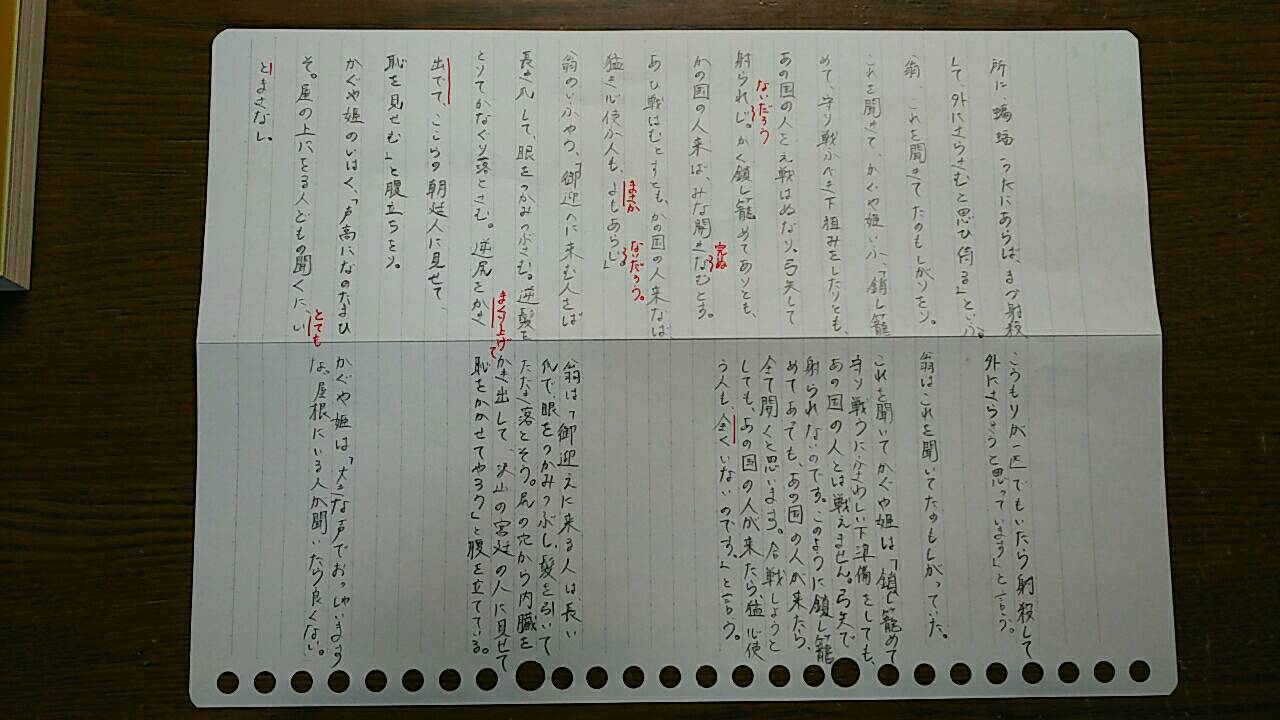 所に蝙蝠一つだにあらば、まづ射殺
して、外にさらさむと思ひ侍る」といふ。
翁、これを聞きてたのもしがりをり。
これを聞きて、かぐや姫いふ、「鎖し籠
めて、守り戦ふべき下組みをしたりとも、
あの国の人をえ戦はぬなり。弓矢して
ないだろう
射られじ。かく鎖し籠めてありとも、
かの国の人来ば、みな開きなむとす。
完ぬ
あひ戦はむとすとも、かの国の人来なば、
猛き心使ふ人も、よもあらじ」
まさか
ないだろう。
翁のいふやう、「御迎へに来む人をば
長き爪して、眼をつかみつぶさむ。逆髪を
とりてかなぐり落とさむ。逆尻をかき
まくり上げて
出でて、ここらの朝廷人に見せて、
恥を見せむ」と腹立ちをり。
かぐや姫のいはく、「声高になのたまひ
そ。屋の上にをる人どもの聞くに、い
とても
とまさなし。
こうもりが一匹でもいたら射殺して
外にさらそうと思っています」と言う。
翁はこれを聞いてたのもしがっていた。
これを聞いてかぐや姫は「鎖し籠めて
守り戦うにふさわしい下準備をしても、
あの国の人とは戦えません。弓矢で
射られないのです。このように鎖し籠
めてあっても、あの国の人が来たら、
全て開くと思います。合戦しようと
しても、あの国の人が来たら、猛心使
う人も、全くいないのです。」と言う。
翁は「御迎えに来る人は長い
爪で眼をつかみつぶし、髪を引いて
たたき落とそう。尻の穴から内臓を
かき出して、沢山の宮廷の人に見せて
恥をかかせてやろう」と腹を立てている。
かぐや姫は「大きな声でおっしゃいます
な。屋根にいる人が聞いたら良くない。